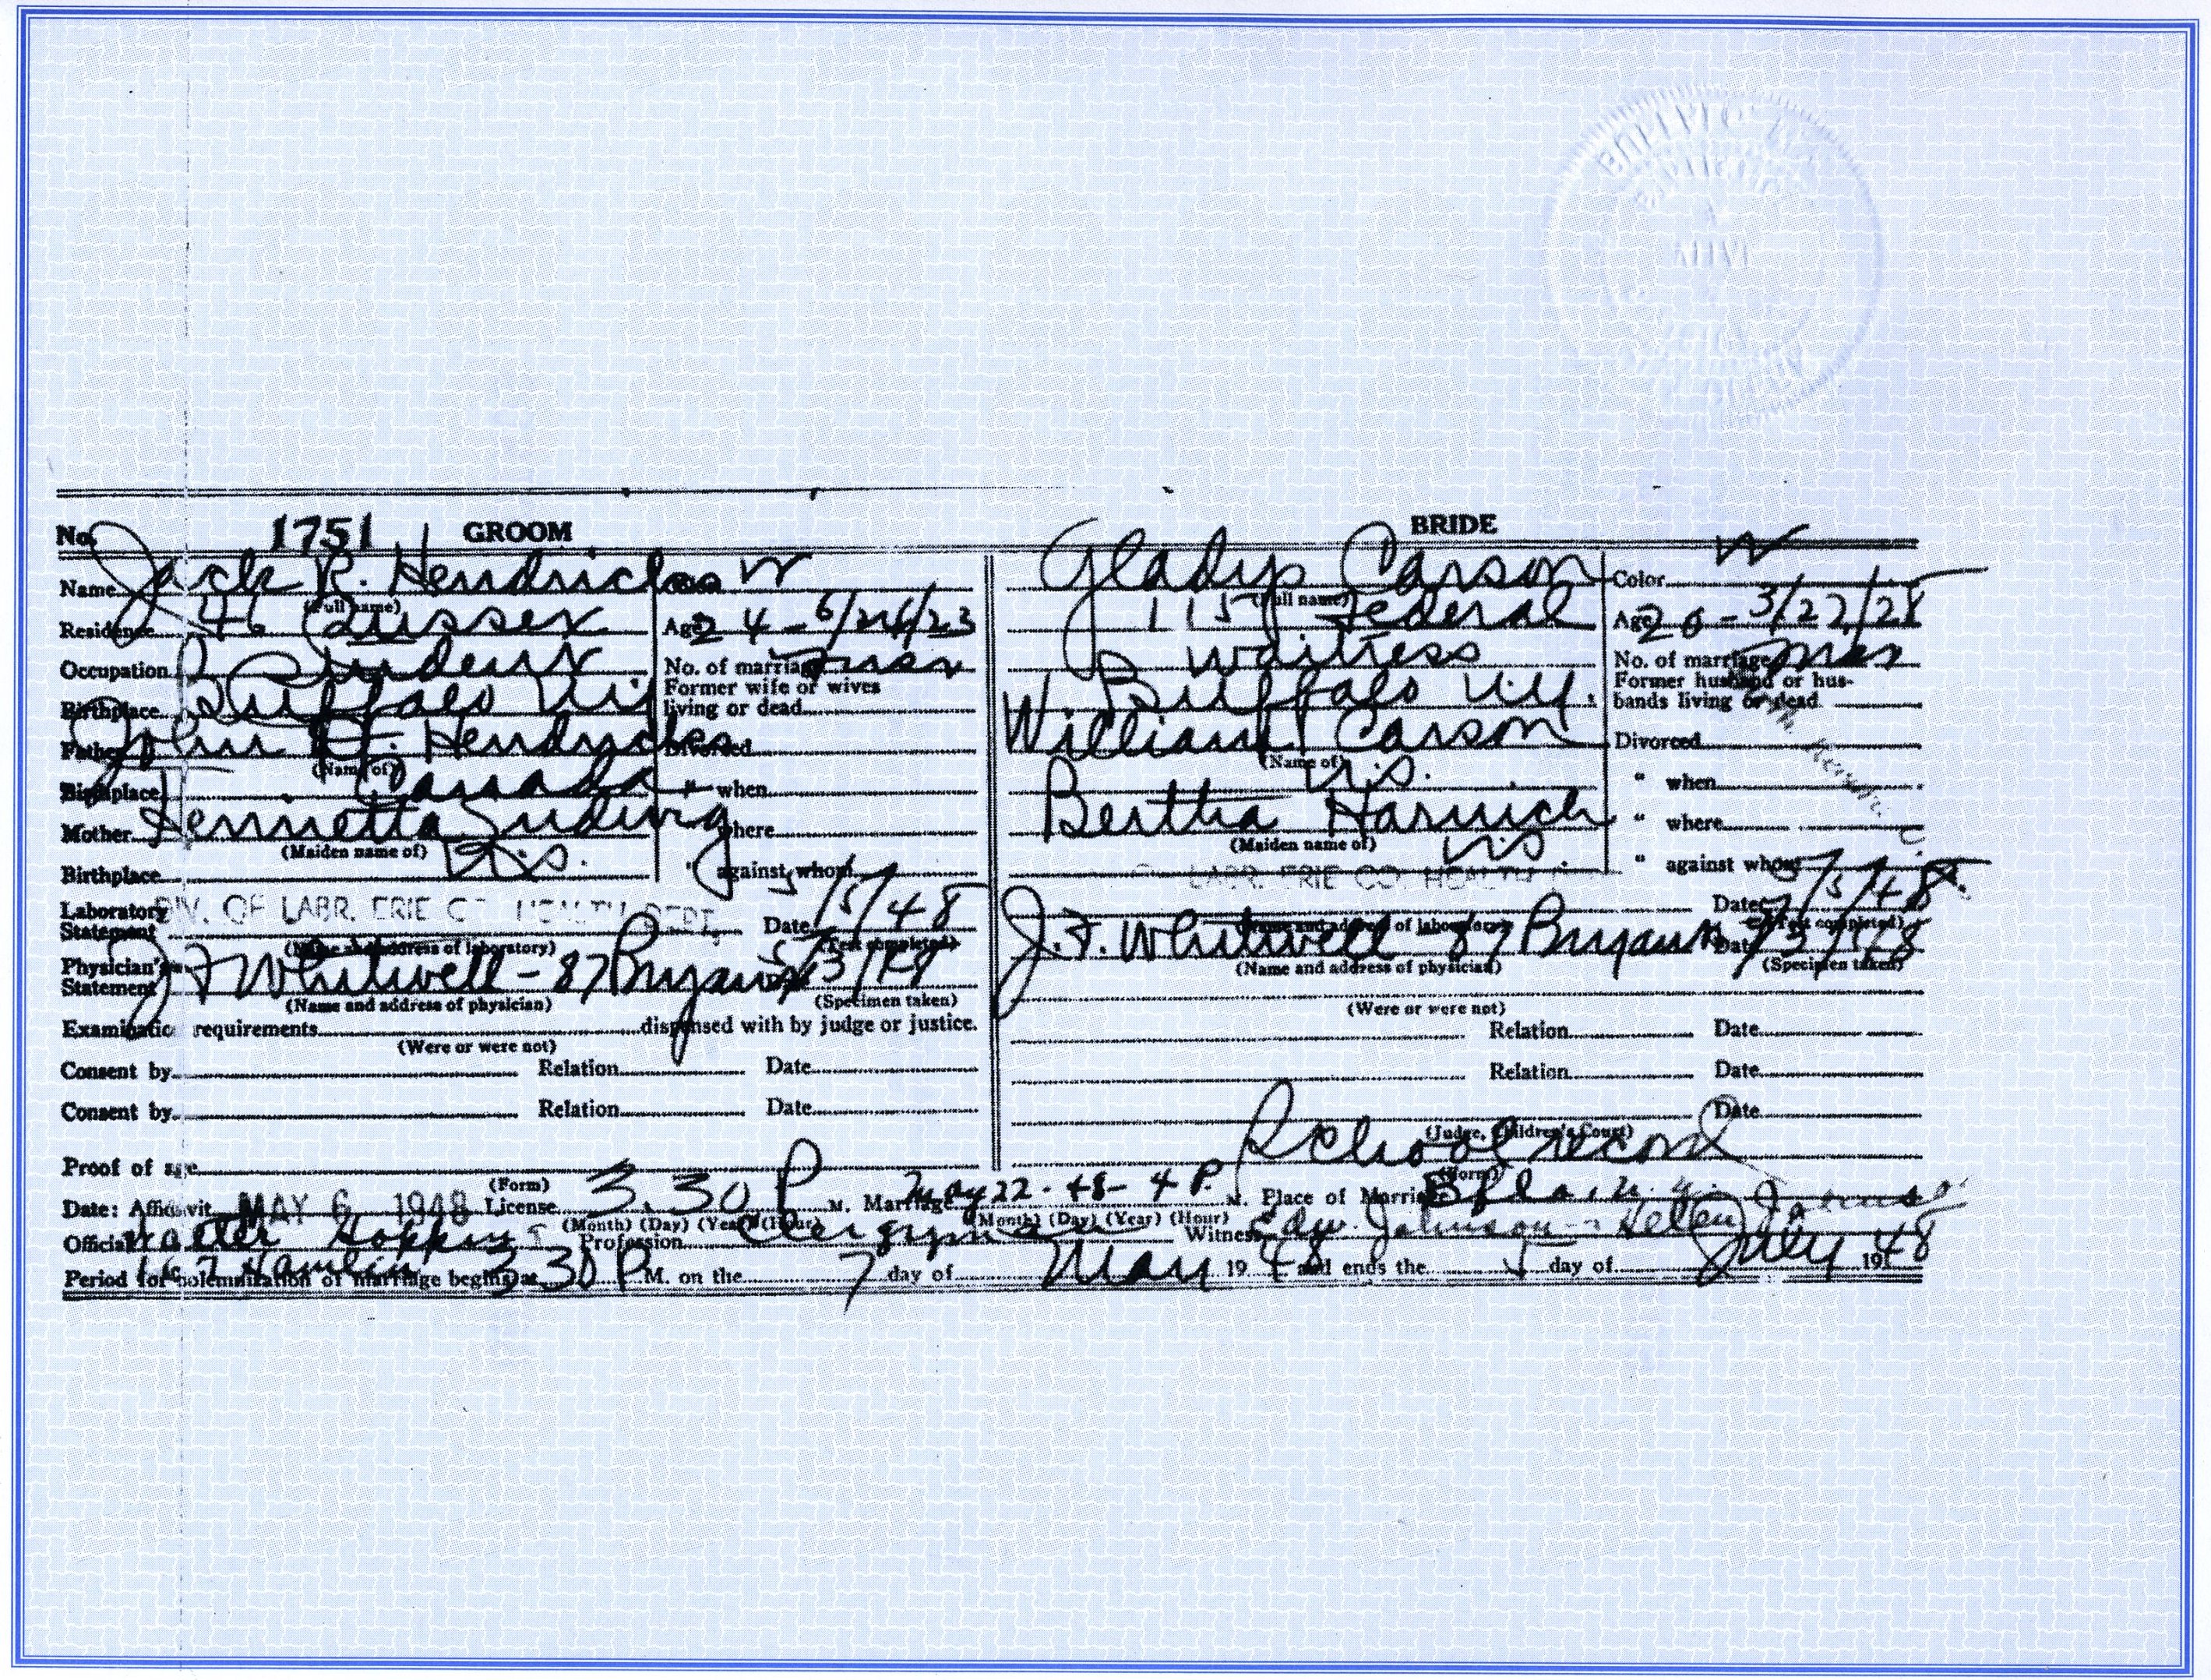 No. 1751 GROOM BRIDE
Name Jack R. Hendricks W Gladys Carson Color W
(Full name) (Full name)
Residence 46 Sussex Age 24 - 6/24/23 115 Federal Age 20 - 3/22/28
Occupation Student No. of marriage First Waitress No. of marriage First
Former wife or wives Former husband or hus-
Birthplace Buffalo N.Y. living or dead Buffalo N.Y. bands living or dead
Father John H. Hendricks Divorced William Carson Divorced
(Name of) (Name of)
Birthplace Canada " when U.S. " when
Mother Henrietta Ludwig " where Bertha Harwich " where
(Maiden name of) (Maiden name of)
Birthplace U.S. " against whom U.S. " against whom
Laboratory DIV. OF LABR. ERIE CO. HEALTH DEPT. Date 5/5/48 LABR. ERIE CO. HEALTH Date 5/5/48
Statement
(Name and address of laboratory) (Test completed) (Name and address of laboratory) (Test completed)
Physician's J F Whitwell - 87 Bryant 5/3/48 J. F. Whitwell 87 Bryant Date 5/3/48
Statement
(Name and address of physician) (Specimen taken) (Name and address of physician) (Specimen taken)
Examination requirements dispensed with by judge or justice.
(Were or were not) (Were or were not)
Consent by Relation Date Relation Date
Consent by Relation Date Relation Date
Date
(Judge, Children's Court)
Proof of age School record
(Form) (Form)
Date: Affidavit MAY 6 1948 License 3.30 P M. Marriage May 22 - 48 - 4 P. M. Place of Marriage Bflo, N.Y.
(Month) (Day) (Year) (Hour) (Month) (Day) (Year) (Hour)
Official Walter Hopkins Profession Clergyman Witness Edw. Johnson - Helen Johnson
Hamlin
Period for solemnization of marriage begins at 3 30 P. M. on the 7 day of May 19 48 and ends the 5 day of July 19 48